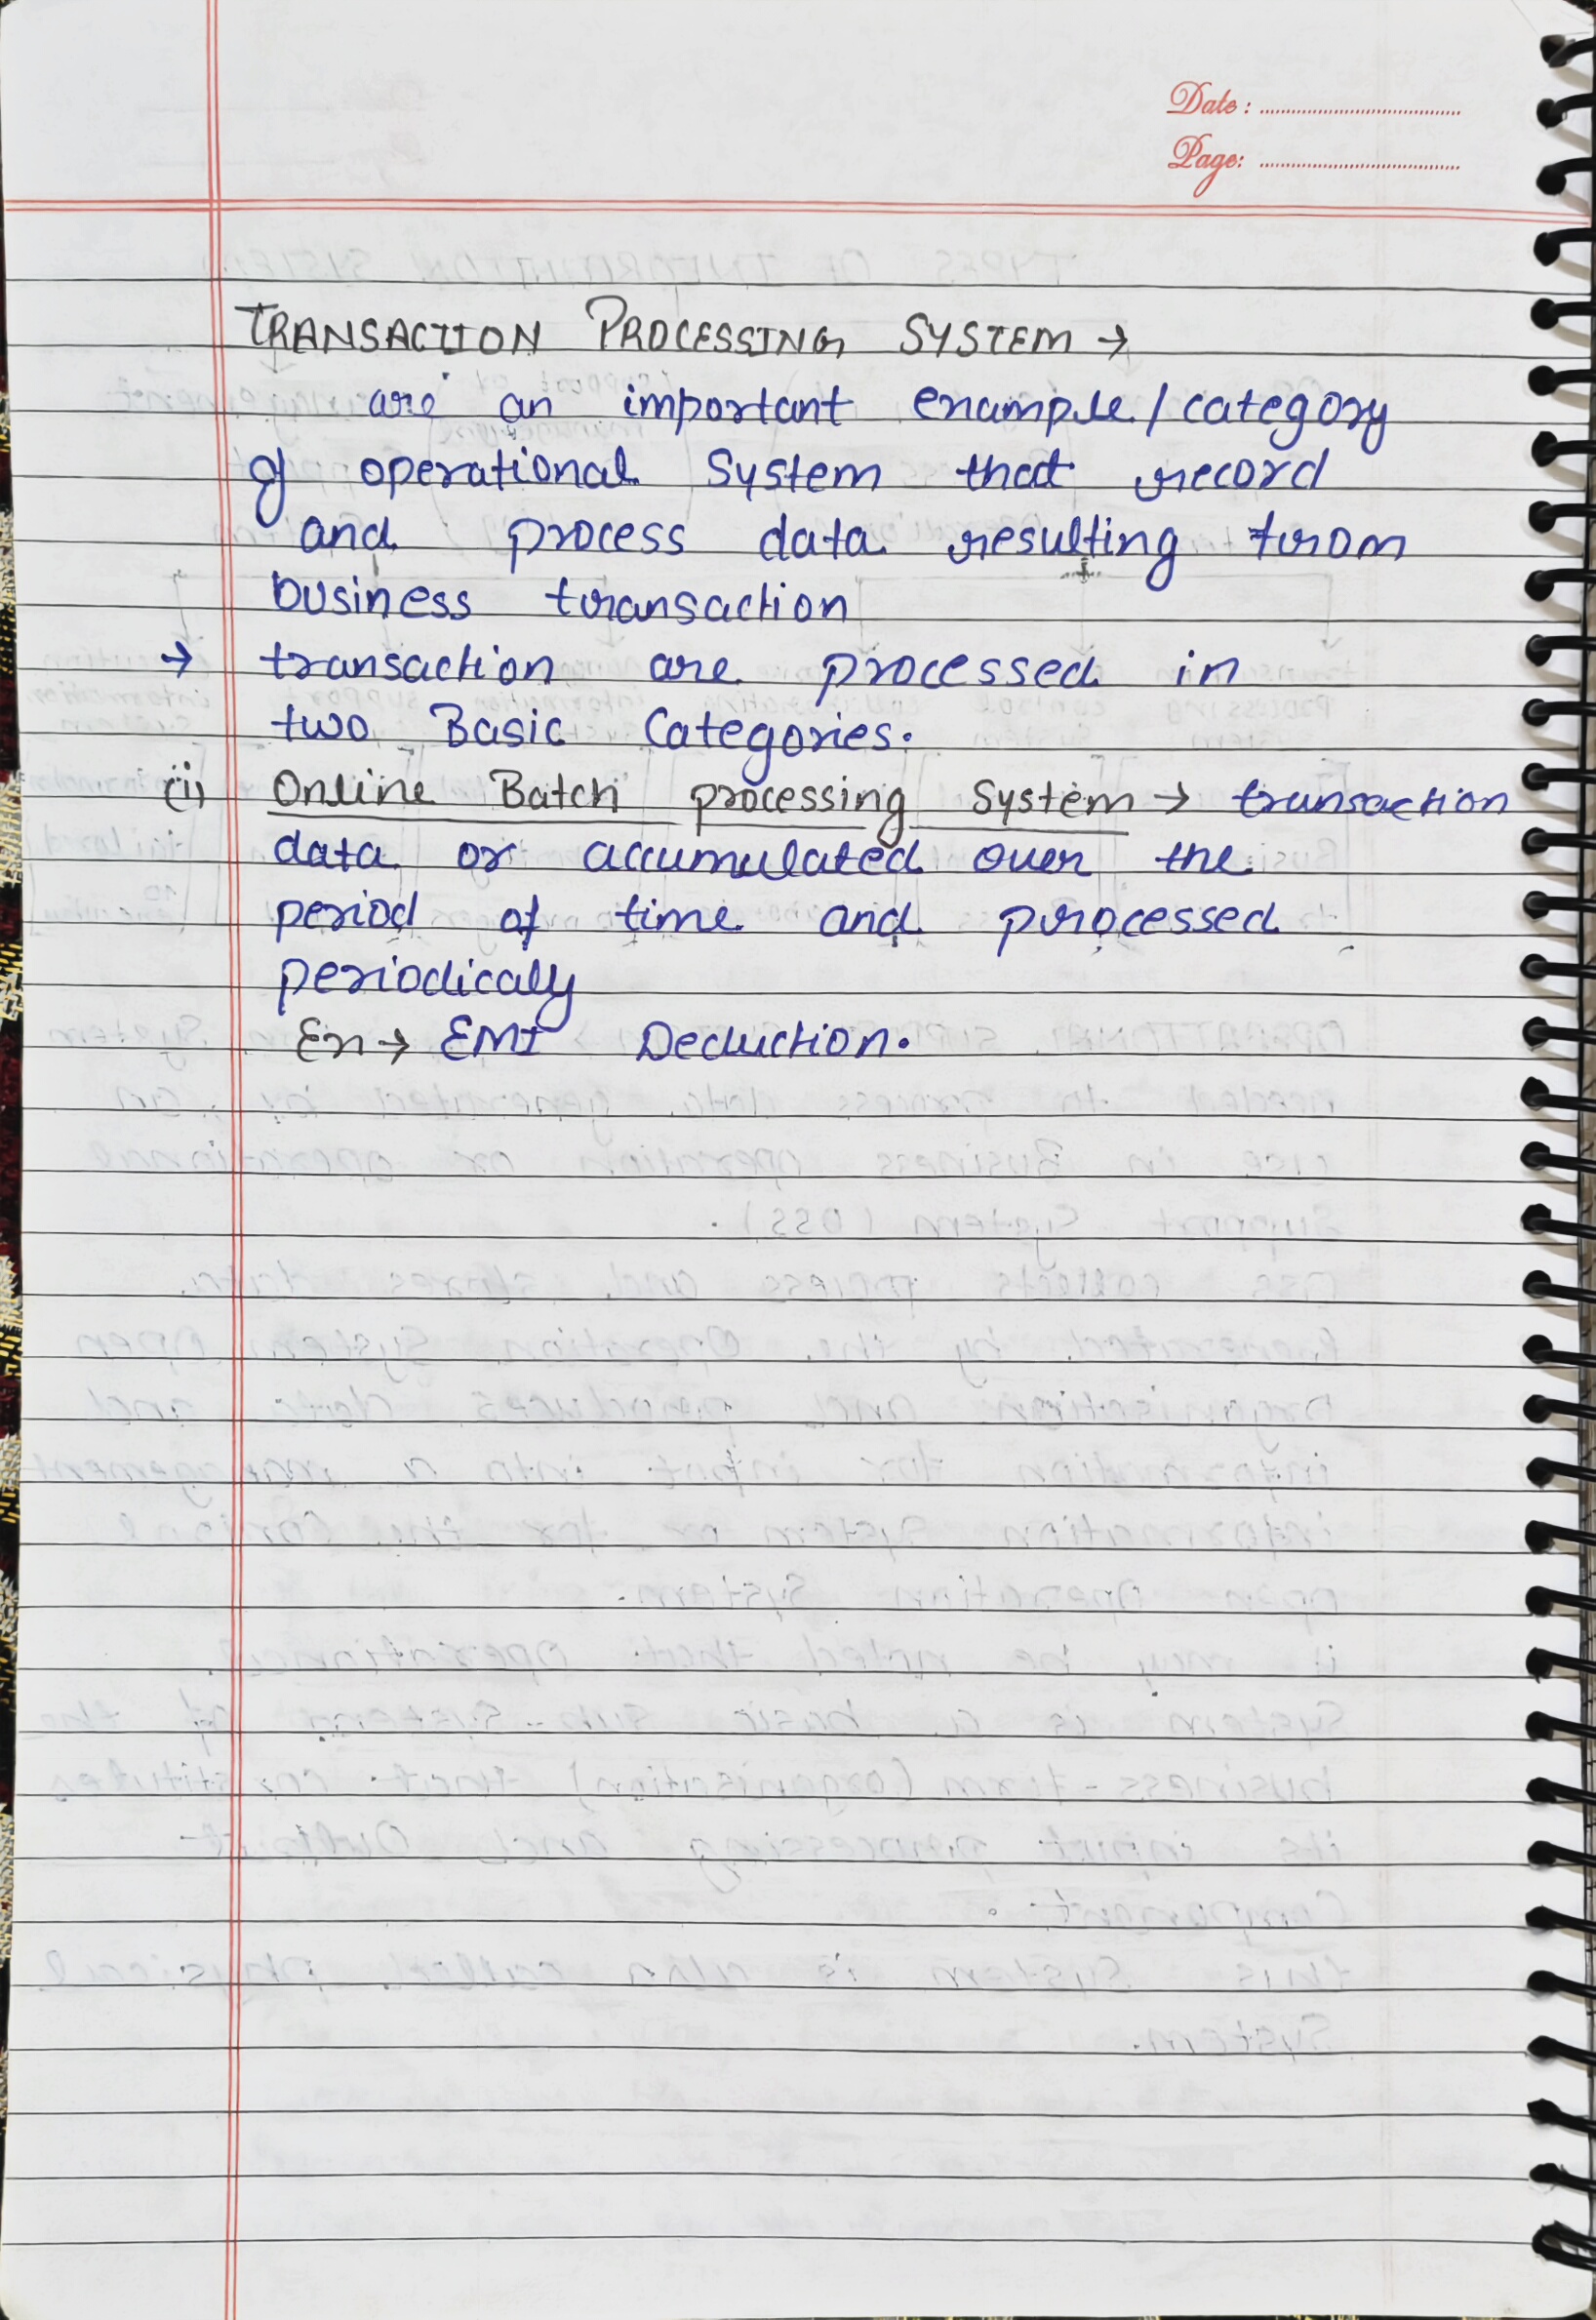 Date :
Page:
TRANSACTION PROCESSING SYSTEM →
are an important example/category
of operational system that record
and process data resulting from
business transaction
→ transaction are processed in
two Basic Categories.
(i) Online Batch processing System → transaction
data or accumulated over the
period of time and processed
periodically
Ex → EMI Deduction.